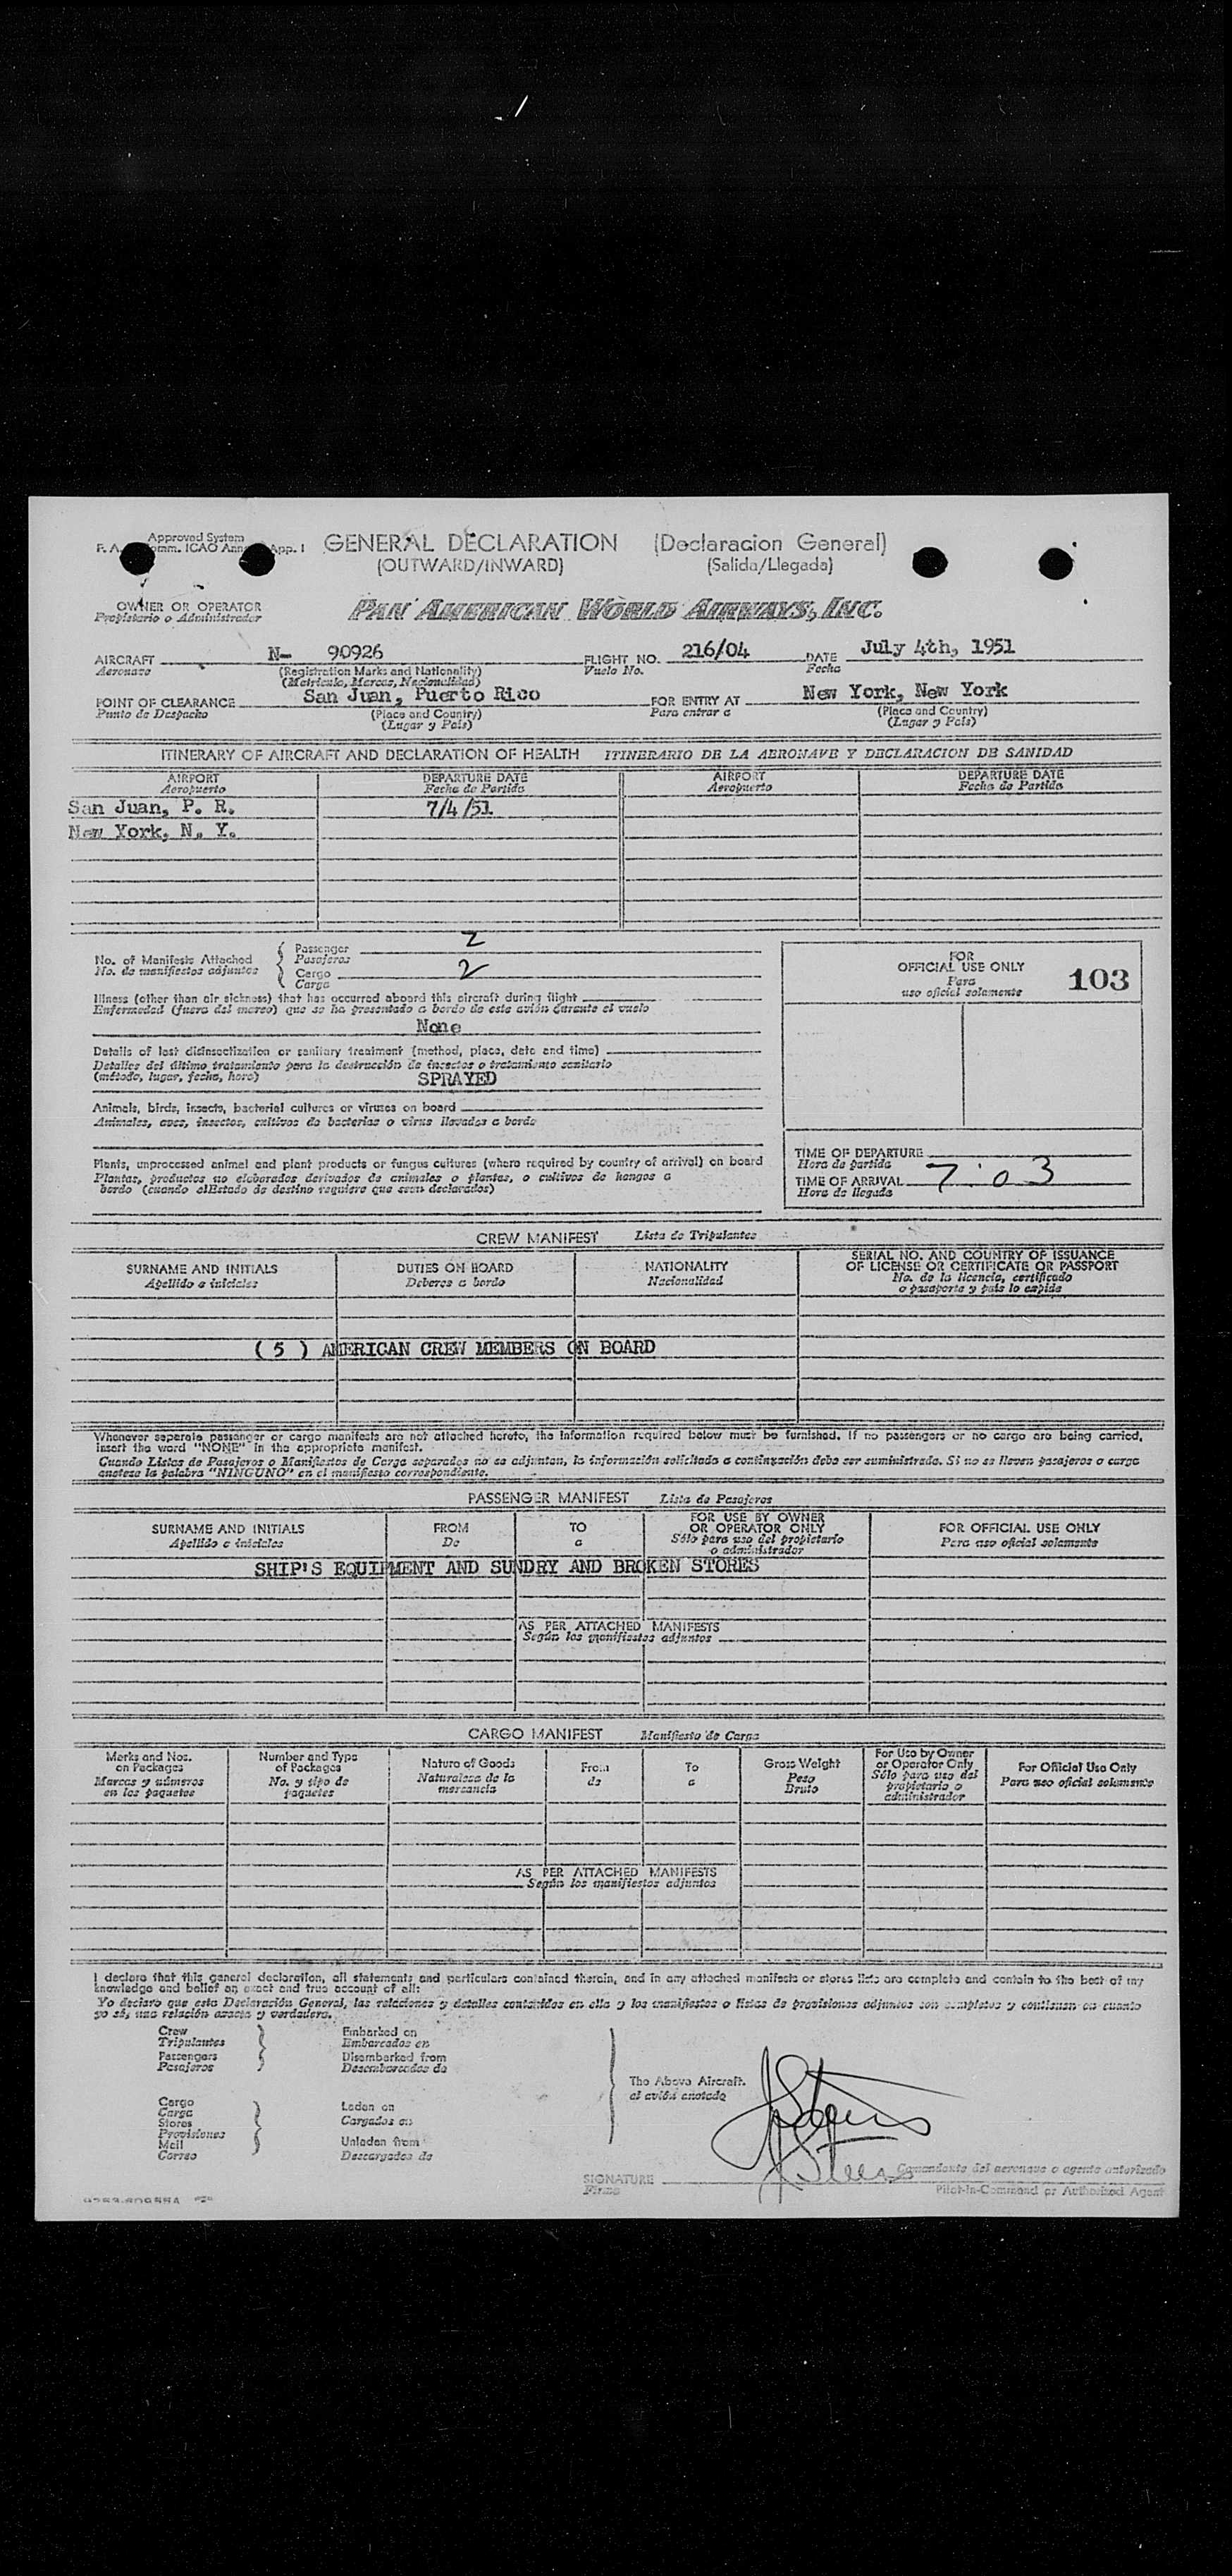 Approved System
F. A. omm. ICAO Ann App. 1
GENERAL DECLARATION (Declaracion General)
(OUTWARD/INWARD) (Salida/Llegada)
OWNER OR OPERATOR
Propietario o Administrador
PAN AMERICAN WORLD AIRWAYS, INC.
AIRCRAFT N- 90926 FLIGHT NO. 216/04 DATE July 4th, 1951
Aeronave (Registration Marks and Nationality) Vuelo No. Fecha
(Matricula, Marcas, Nacionalidad)
POINT OF CLEARANCE San Juan, Puerto Rico FOR ENTRY AT New York, New York
Punto de Despacho (Place and Country) Para entrar a (Place and Country)
(Lugar y País) (Lugar y País)
ITINERARY OF AIRCRAFT AND DECLARATION OF HEALTH ITINERARIO DE LA AERONAVE Y DECLARACION DE SANIDAD
AIRPORT DEPARTURE DATE AIRPORT DEPARTURE DATE
Aeropuerto Fecha de Partida Aeropuerto Fecha de Partida
San Juan, P. R. 7/4/51
New York, N. Y.
No. of Manifests Attached
No. de manifiestos adjuntos
Passenger 2
Pasajeros
Cargo 2
Carga
FOR
OFFICIAL USE ONLY
Para
uso oficial solamente
103
Illness (other than air sickness) that has occurred aboard this aircraft during flight
Enfermedad (fuera del mareo) que se ha presentado a bordo de este avión durante el vuelo
None
Details of last disinsectization or sanitary treatment (method, place, date and time)
Detalles del último tratamiento para la destrucción de insectos o tratamiento sanitario
(método, lugar, fecha, hora)
SPRAYED
Animals, birds, insects, bacterial cultures or viruses on board
Animales, aves, insectos, cultivos de bacterias o virus llevados a bordo
Plants, unprocessed animal and plant products or fungus cultures (where required by country of arrival) on board
Plantas, productos no elaborados derivados de animales o plantas, o cultivos de hongos a
bordo (cuando elEstado de destino requiere que sean declarados)
TIME OF DEPARTURE
Hora de partida
TIME OF ARRIVAL 7:03
Hora de llegada
CREW MANIFEST Lista de Tripulantes
SURNAME AND INITIALS DUTIES ON BOARD NATIONALITY SERIAL NO. AND COUNTRY OF ISSUANCE
OF LICENSE OR CERTIFICATE OR PASSPORT
Apellido e iniciales Deberes a bordo Nacionalidad No. de la licencia, certificado
o pasaporte y país lo expide
( 5 ) AMERICAN CREW MEMBERS ON BOARD
Whenever separate passenger or cargo manifests are not attached hereto, the information required below must be furnished. If no passengers or no cargo are being carried,
insert the word "NONE" in the appropriate manifest.
Cuando Listas de Pasajeros o Manifiestos de Carga separados no se adjuntan, la información solicitada a continuación debe ser suministrada. Si no se lleven pasajeros o carga
anotese la palabra "NINGUNO" en el manifiesto correspondiente.
PASSENGER MANIFEST Lista de Pasajeros
SURNAME AND INITIALS FROM TO FOR USE BY OWNER
OR OPERATOR ONLY FOR OFFICIAL USE ONLY
Apellido e iniciales De a Sólo para uso del propietario
o administrador Para uso oficial solamente
SHIP'S EQUIPMENT AND SUNDRY AND BROKEN STORES
AS PER ATTACHED MANIFESTS
Según los manifiestos adjuntos
CARGO MANIFEST Manifiesto de Carga
Marks and Nos.
on Packages
Marcas y números
en los paquetes
Number and Type
of Packages
No. y tipo de
paquetes
Nature of Goods
Naturaleza de la
mercancía
From
de
To
a
Gross Weight
Peso
Bruto
For Use by Owner
or Operator Only
Sólo para uso del
propietario o
administrador
For Official Use Only
Para uso oficial solamente
AS PER ATTACHED MANIFESTS
Según los manifiestos adjuntos
I declare that this general declaration, all statements and particulars contained therein, and in any attached manifests or stores lists are complete and contain to the best of my
knowledge and belief an exact and true account of all:
Yo declaro que esta Declaración General, las relaciones y detalles contenidos en ella y los manifiestos o listas de provisiones adjuntos son completos y contienen en cuanto
yo sé, una relación exacta y verdadera.
Crew
Tripulantes
Passengers
Pasajeros
Embarked on
Embarcados en
Disembarked from
Desembarcados de
The Above Aircraft.
el avión anotado
Cargo
Carga
Stores
Provisiones
Mail
Correo
Laden on
Cargados en
Unladen from
Descargados de
SIGNATURE
Firma
Comandante del aeronave o agente autorizado
Pilot-in-Command or Authorized Agent